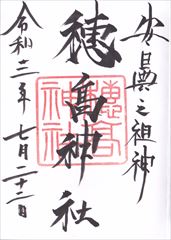 安曇之祖神
穂髙神社
令和三年七月二十二日
穂高
神社